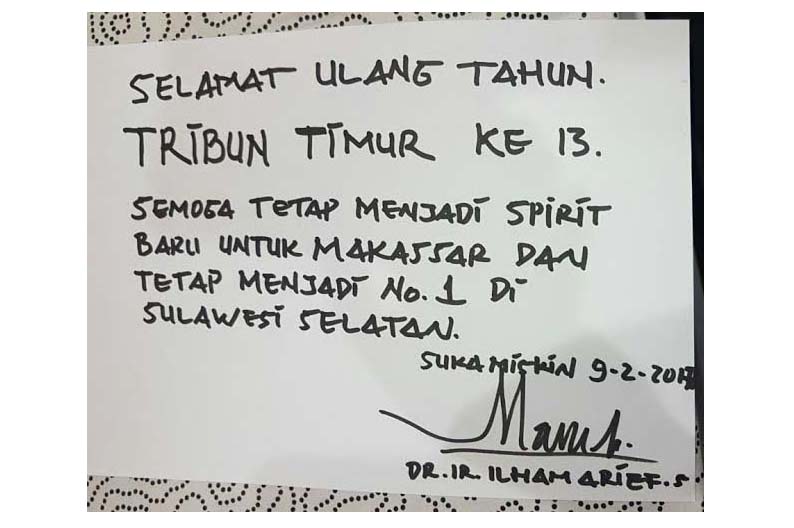 SELAMAT ULANG TAHUN.
TRIBUN TIMUR KE 13.
SEMOGA TETAP MENJADI SPIRIT
BARU UNTUK MAKASSAR DAN
TETAP MENJADI No. 1 Di
SULAWESI SELATAN.
SUKAMISKIN 9-2-2017
DR. IR. ILHAM ARIEF. S